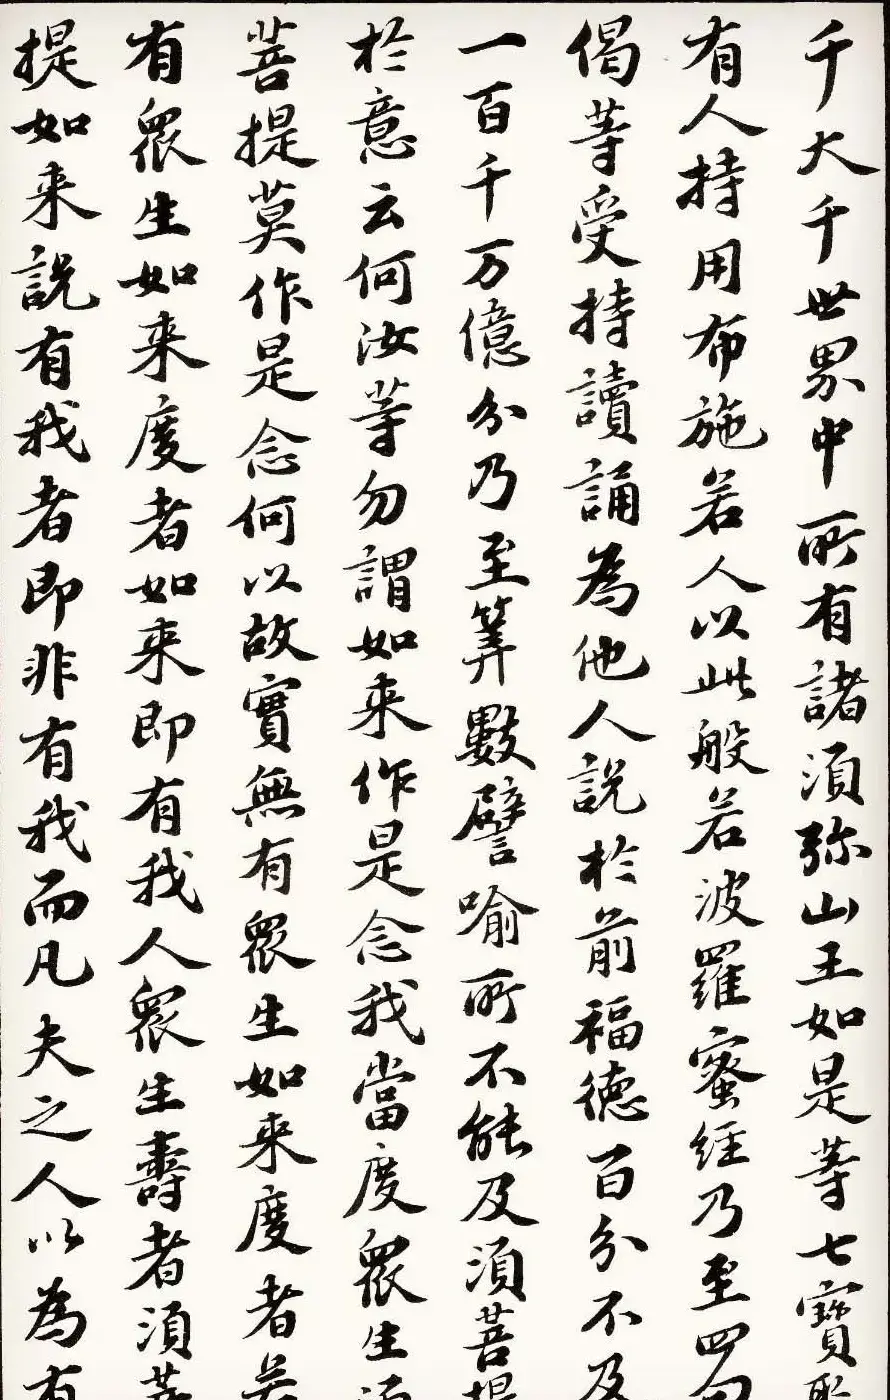 千大千世界中所有諸須弥山王如是等七寶聚
有人持用布施若人以此般若波羅蜜経乃至四句
偈等受持讀誦為他人説於前福德百分不及
一百千万億分乃至筭數譬喻所不能及須菩提
於意云何汝等勿謂如来作是念我當度衆生須
菩提莫作是念何以故實無有衆生如来度者若
有衆生如来度者如来即有我人衆生壽者須菩
提如来説有我者即非有我而凡夫之人以為有